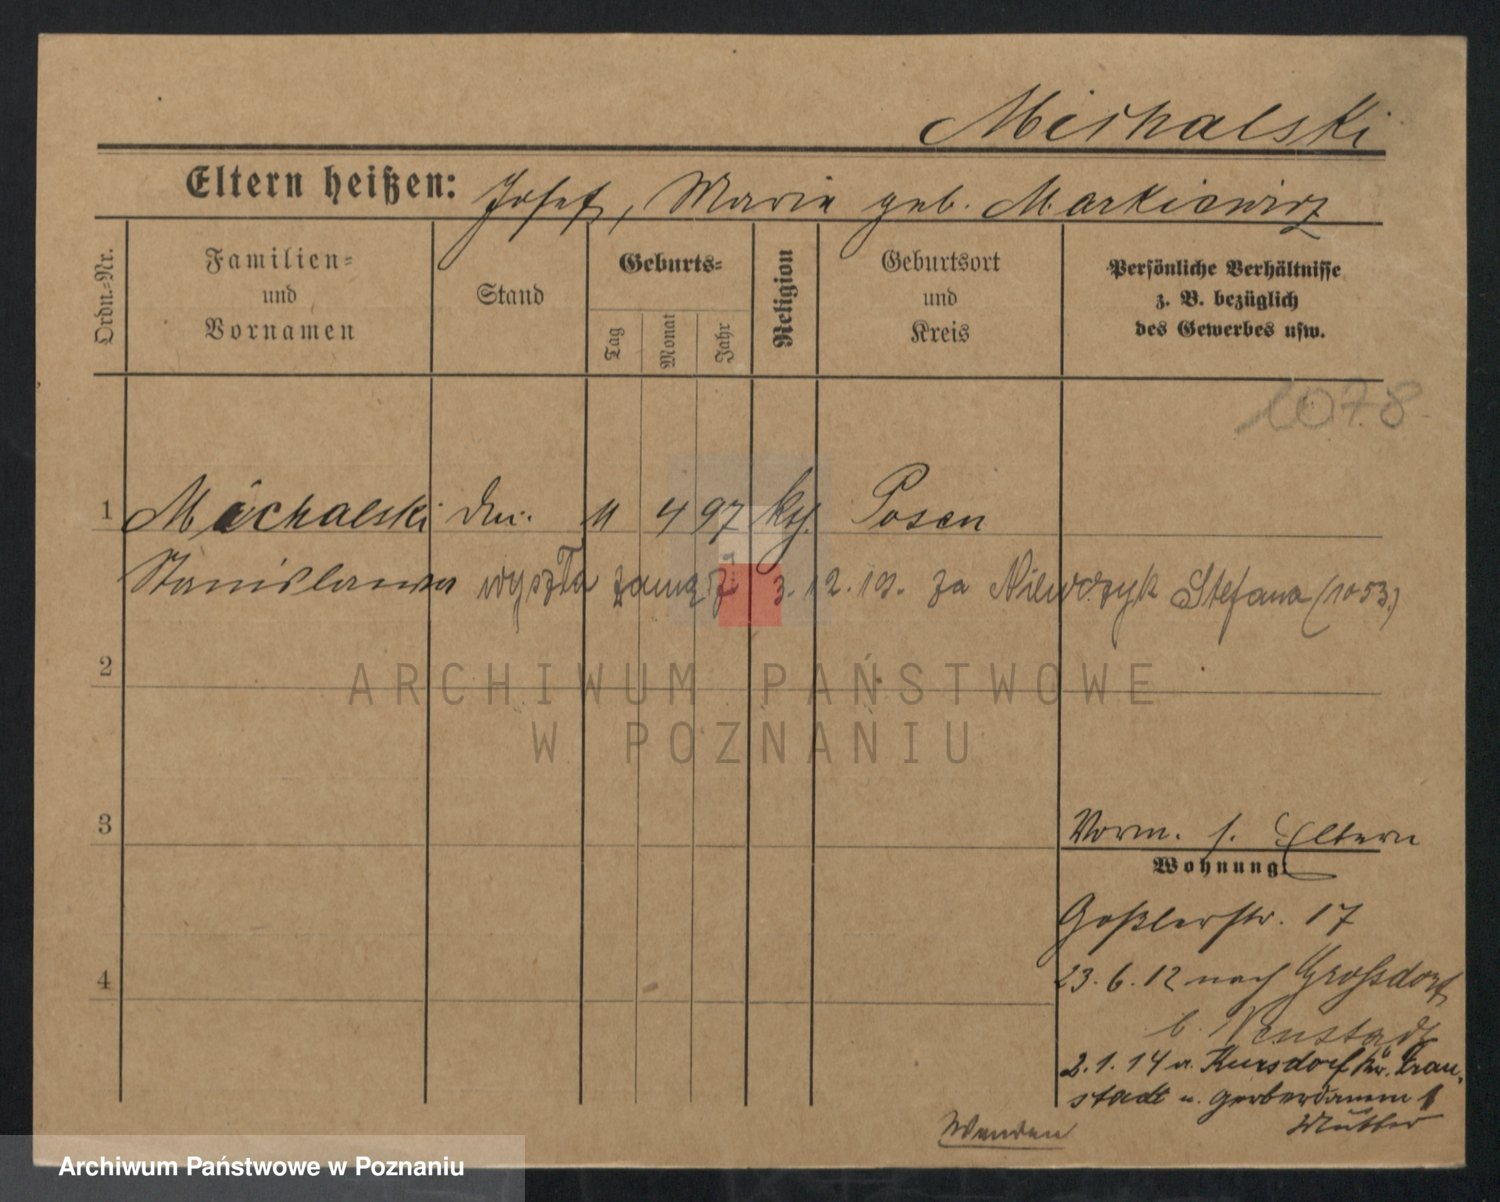 Michalski
Eltern heißen: Josef, Maria geb. Markiewicz
Ordn.-Nr.
Familien=
und
Vornamen
Stand
Geburts=
Tag
Monat
Jahr
Religion
Geburtsort
und
Kreis
Persönliche Verhältnisse
z. B. bezüglich
des Gewerbes usw.
1078
1 Michalski 11 4 97 Posen
Stanislawa wyszła zamąż 3.12.19. za Niewczyk Stefana (1053)
2
ARCHIWUM PAŃSTWOWE
W POZNANIU
3
Vorm. s. Eltern
Wohnung:
Goßlerstr. 17
4
23.6.12 nach Grossdorf
b. Neustadt
2.1.14 a. Kursdorf Kr. Frau-
stadt n. Gerberdamm 1
Mutter
Wenden
Archiwum Państwowe w Poznaniu